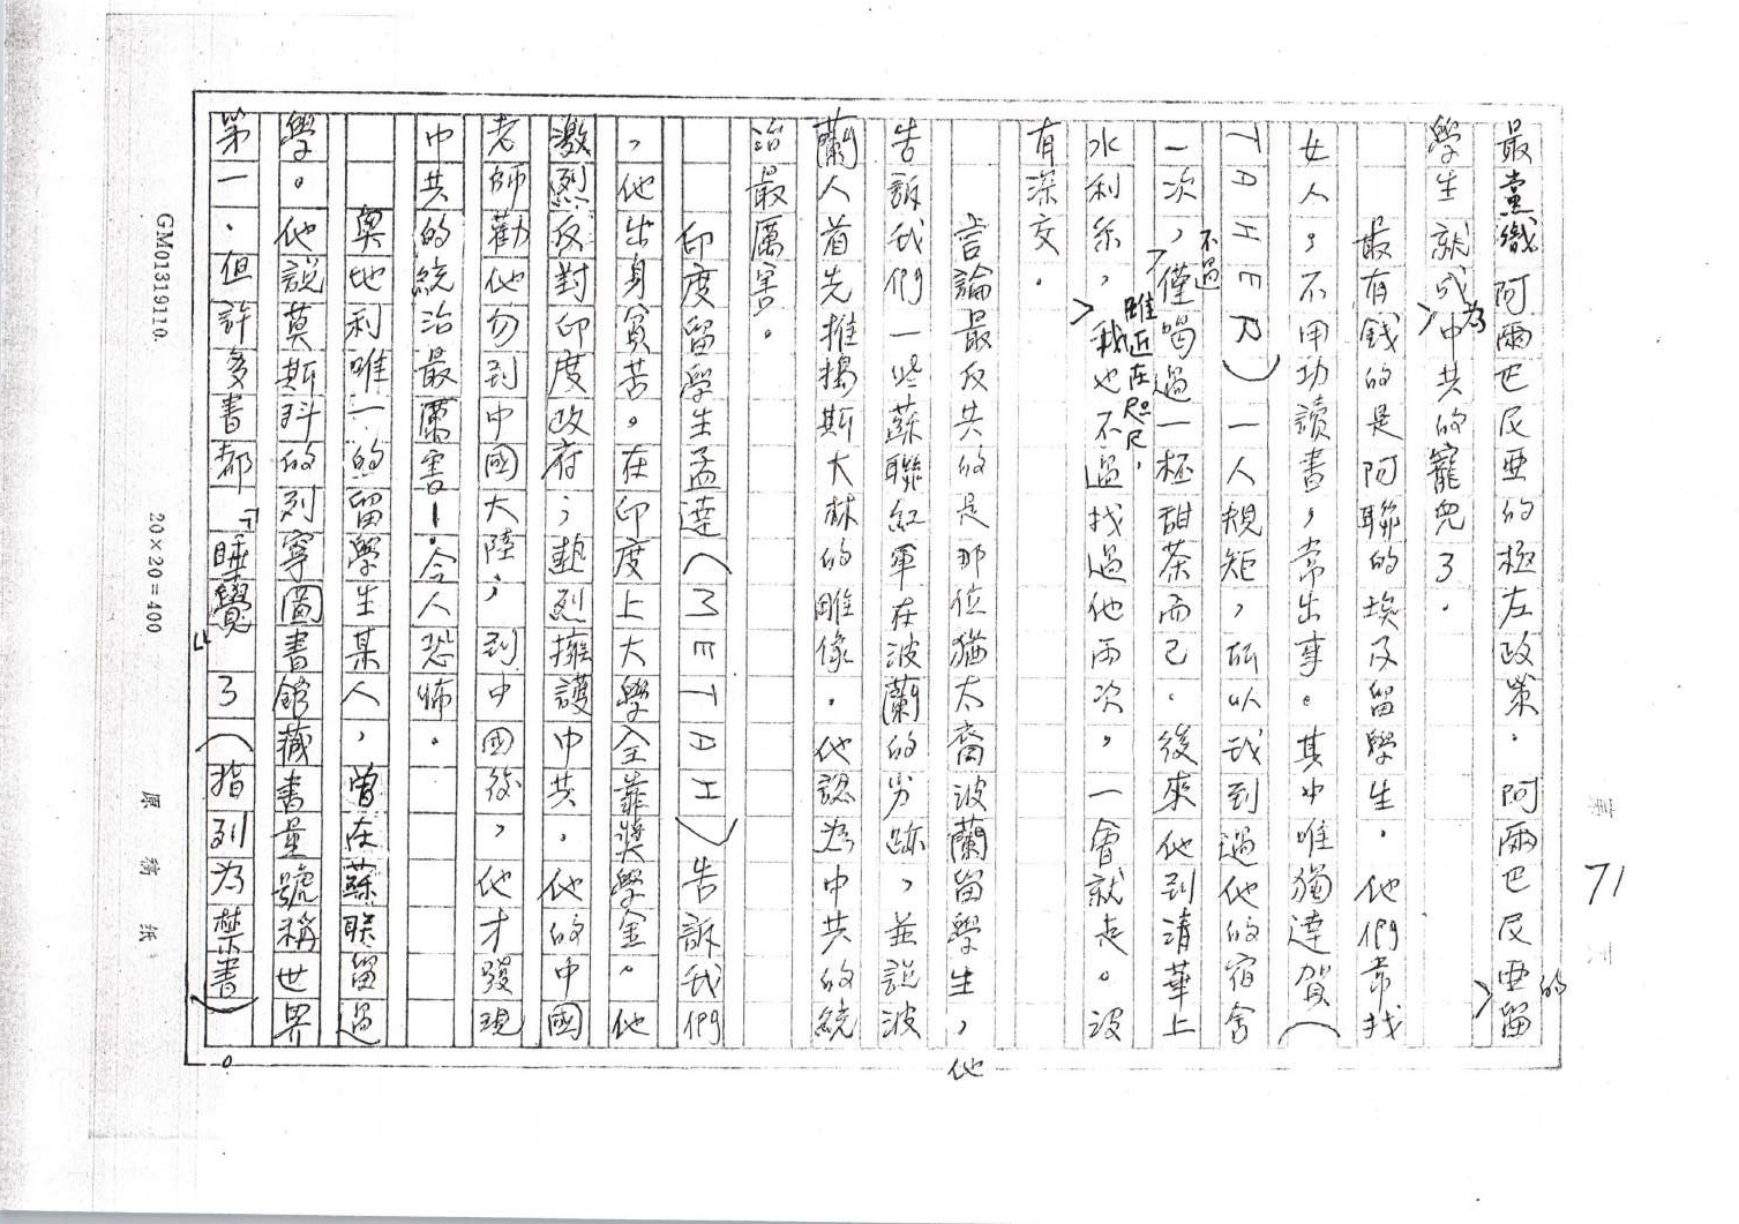 最黨徽阿爾巴尼亞的極左政策．阿爾巴尼亞的留
學生就成為中共的寵兒了．
最有錢的是阿聯的埃及留學生．他們常找
女人，不用功讀書，常出事。其中唯獨達賀（
TDHER）一人規矩，所以我到過他的宿舍
一次，不過僅喝過一杯甜茶而已．後來他到清華上
水利系，雖近在咫尺，我也不過找過他兩次，一會就走。沒
有深交．
言論最反共的是那位猶太裔波蘭留學生，他
告訴我們一些蘇聯紅軍在波蘭的劣跡，並說波
蘭人首先推揚斯大林的雕像．他認為中共的統
治最厲害。
印度留學生孟達（METDH）告訴我們
，他出身貧苦。在印度上大學全靠獎學金。他
激烈反對印度政府；熱烈擁護中共．他的中國
老師勸他勿到中國大陸；到中國後，他才發現
中共的統治最厲害！令人恐怖．
奧地利唯一的留學生某人，曾在蘇联留過
學。他說莫斯科的列寧圖書館藏書量號稱世界
第一．但許多書都『睡覺』了（指列為禁書）。
71
GM01319110.
20×20=400
原稿紙